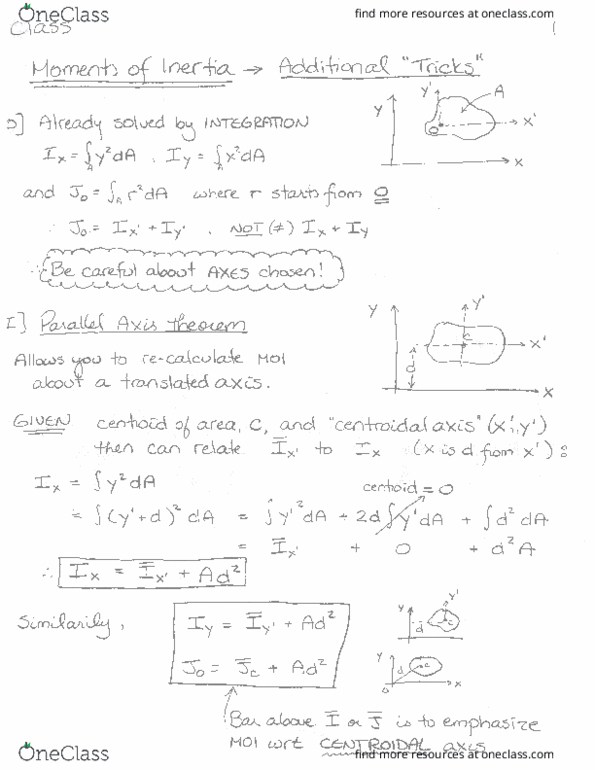 OneClass
find more resources at oneclass.com
Class
1
Moments of Inertia → Additional "Tricks"
0] Already solved by INTEGRATION
Ix = ∫A y²dA , Iy = ∫A x²dA
and J₀ = ∫A r²dA where r starts from O
∴ J₀ = Ix' + Iy' , NOT (≠) Ix + Iy
∴ Be careful about AXES chosen!
Y
Y'
A
O
X'
X
I] Parallel Axis Theorem
Allows you to re-calculate MOI
about a translated axis.
Y
Y'
C
X'
d
X
GIVEN centroid of area, C, and "centroidal axis" (x', y')
then can relate Īx' to Ix (x is d from x') :
Ix = ∫y²dA
centroid = 0
= ∫(y'+d)² dA = ∫y'²dA + 2d∫y'dA + ∫d² dA
= Īx' + 0 + d²A
∴ Ix = Īx' + Ad²
Similarily,
Iy = Īy' + Ad²
J₀ = J̄c + Ad²
Y
Y'
d
C
X
Y
d
C
O
X
Bar above Ī or J̄ is to emphasize
MOI wrt CENTROIDAL axis
OneClass
find more resources at oneclass.com